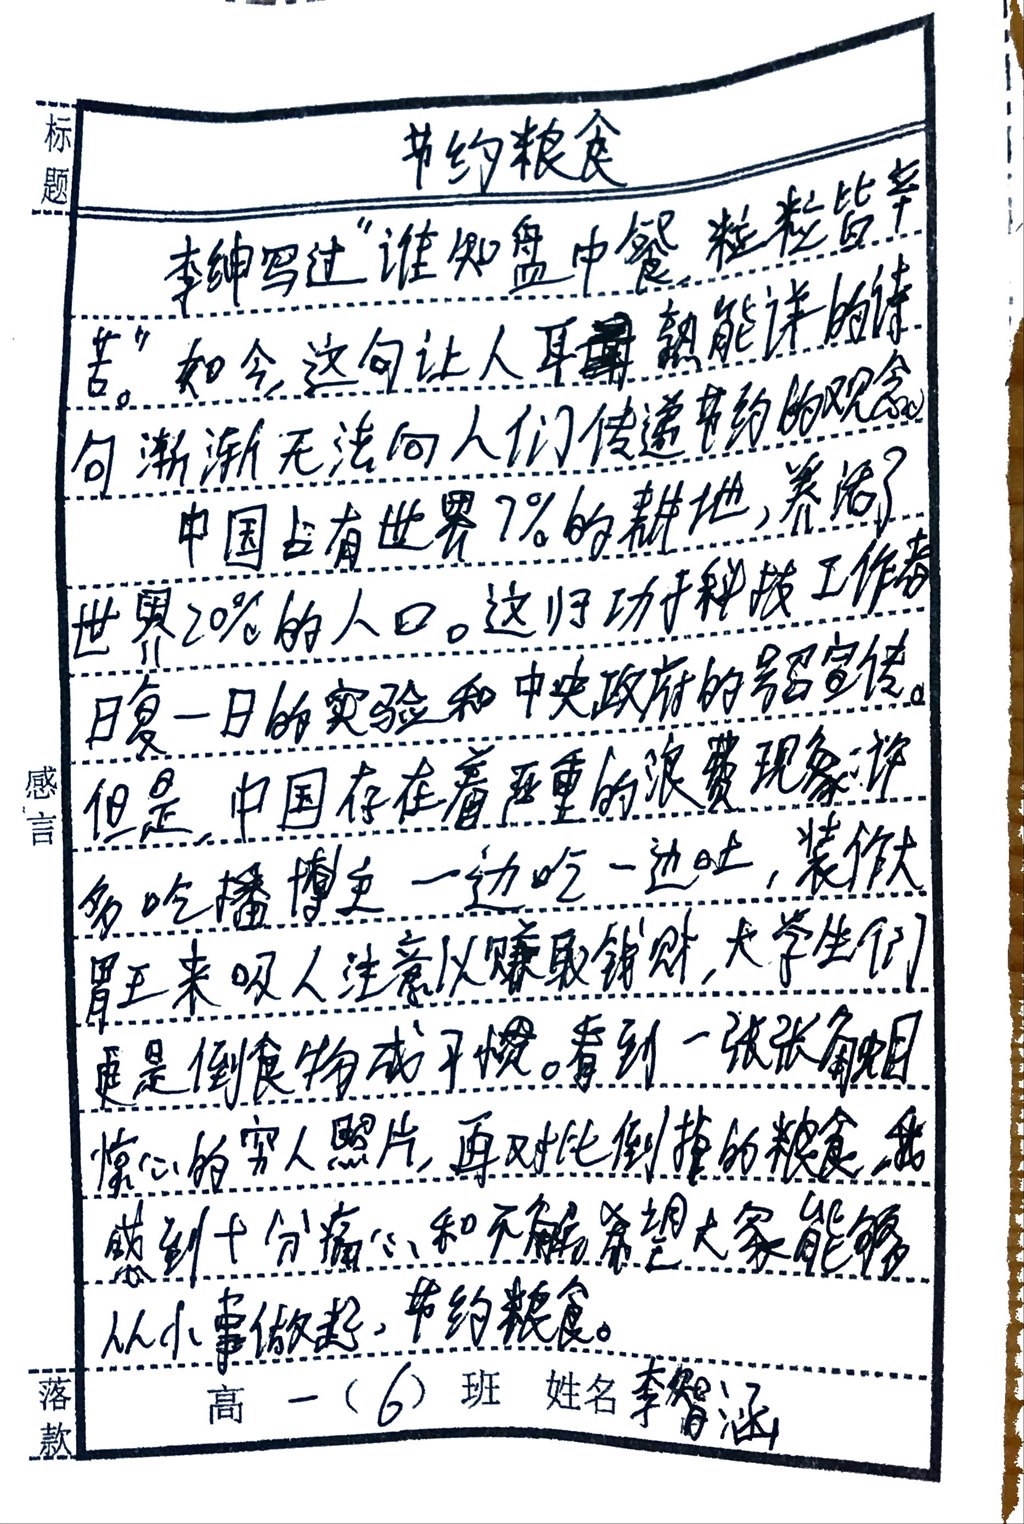 标题
节约粮食
李绅写过“谁知盘中餐,粒粒皆辛
苦。”如今,这句让人耳熟能详的诗
句渐渐无法向人们传递节约的观念。
中国占有世界7%的耕地,养活了
世界20%的人口。这归功于科技工作者
日复一日的实验和中央政府的号召宣传。
但是,中国存在着严重的浪费现象:许
多吃播博主一边吃一边吐,装作大
胃王来吸人注意以赚取钱财,大学生们
更是倒食物成习惯。看到一张张触目
惊心的穷人照片,再对比倒掉的粮食,我
感到十分痛心和不解。希望大家能够
从小事做起,节约粮食。
感言
落款
高一(6)班 姓名李智涵